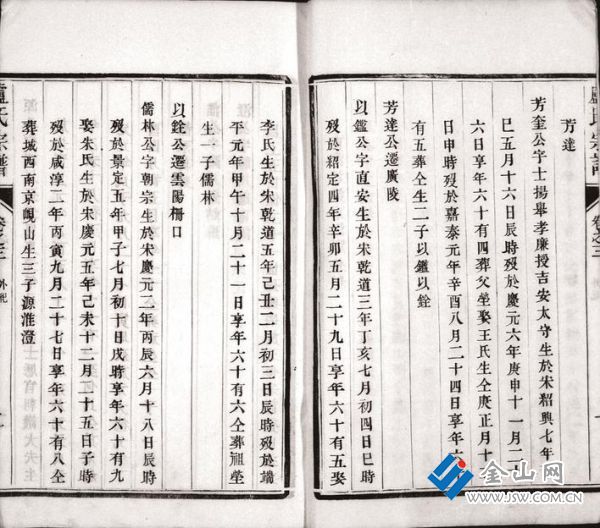 芳達
芳奎公字士揚舉孝廉授吉安太守生於宋紹興七年
巳五月十六日辰時歿於慶元六年庚申十一月二
六日享年六十有四葬父塋娶王氏生仝庚正月十
日申時歿於嘉泰元年辛酉八月二十四日享年六
有五葬仝生二子以鑑以銓
芳達公遷廣陵
以鑑公字直安生於宋乾道三年丁亥七月初四日巳時
歿於紹定四年辛卯五月二十九日享年六十有五娶
李氏生於宋乾道五年己丑二月初三日辰時歿於端
平元年甲午十月二十一日享年六十有六仝葬祖塋
生一子儒林
以銓公遷雲陽柵口
儒林公字朝宗生於宋慶元二年丙辰六月十八日辰時
歿於景定五年甲子七月初十日戌時享年六十有九
娶朱氏生於宋慶元五年己未十二月二十五日子時
歿於咸淳二年丙寅九月二十七日享年六十有八仝
葬城西南京峴山生三子源淮澄
盧氏宗譜
卷之三
外紀
金山网
www.JSW.com.cn